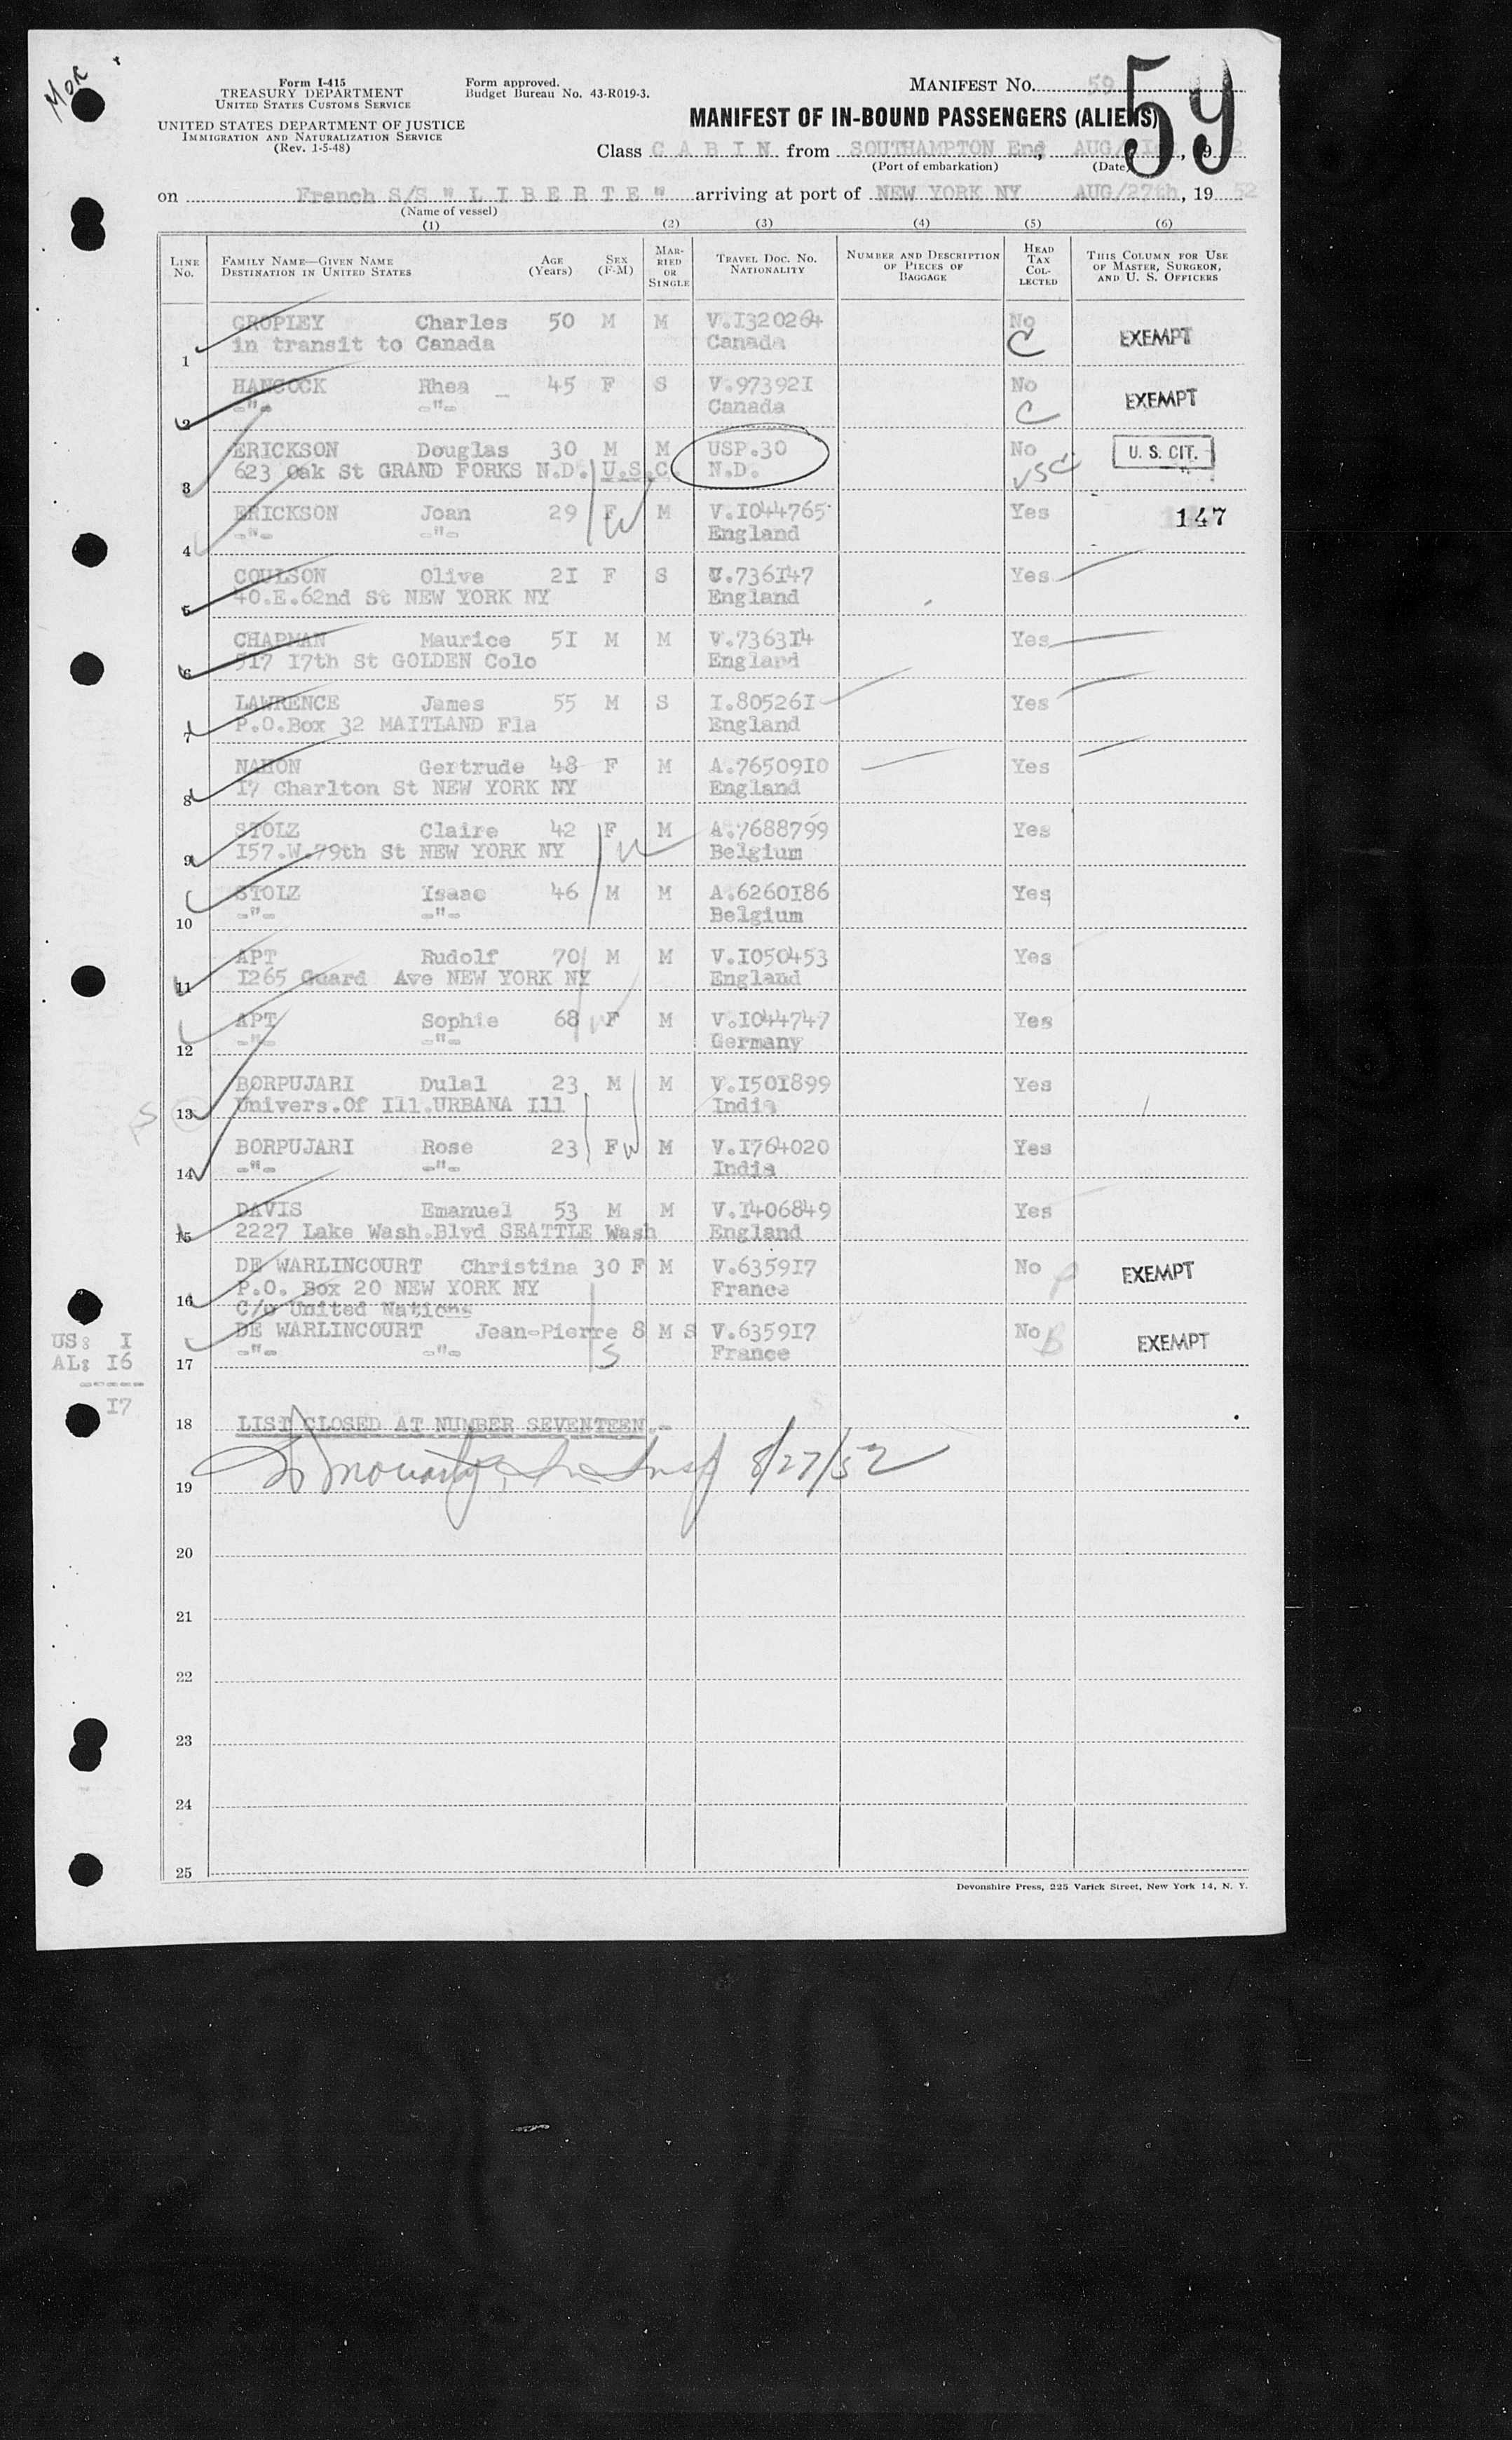 Mor
Form I-415
TREASURY DEPARTMENT
UNITED STATES CUSTOMS SERVICE
UNITED STATES DEPARTMENT OF JUSTICE
IMMIGRATION AND NATURALIZATION SERVICE
(Rev. 1-5-48)
Form approved.
Budget Bureau No. 43-R019-3.
MANIFEST No. 59
59
MANIFEST OF IN-BOUND PASSENGERS (ALIENS)
Class C A B I N from SOUTHAMPTON Eng, AUG/ , 19 2
(Port of embarkation) (Date)
on French S/S " L I B E R T E " arriving at port of NEW YORK NY AUG/27th, 19 52
(Name of vessel)
(1) (2) (3) (4) (5) (6)
LINE No. FAMILY NAME—GIVEN NAME DESTINATION IN UNITED STATES AGE (Years) SEX (F-M) MARRIED OR SINGLE TRAVEL DOC. No. NATIONALITY NUMBER AND DESCRIPTION OF PIECES OF BAGGAGE HEAD TAX COLLECTED THIS COLUMN FOR USE OF MASTER, SURGEON, AND U. S. OFFICERS
CROPLEY Charles 50 M M V.I320264 No EXEMPT
1 in transit to Canada Canada C
HANCOCK Rhea 45 F S V.97392I No EXEMPT
2 -"- -"- Canada C
ERICKSON Douglas 30 M M USP.30 No U. S. CIT.
3 623 Oak St GRAND FORKS N.D. U.S.C. N.D. USC
ERICKSON Joan 29 F M V.I044765 Yes 147
4 -"- -"- W England
COULSON Olive 2I F S V.736I47 Yes
5 40.E.62nd St NEW YORK NY England
CHAPMAN Maurice 5I M M V.7363I4 Yes
6 517 I7th St GOLDEN Colo England
LAWRENCE James 55 M S I.80526I Yes
7 P.O.Box 32 MAITLAND Fla England
NAHON Gertrude 48 F M A.76509I0 Yes
8 I7 Charlton St NEW YORK NY England
STOLZ Claire 42 F M A.7688799 Yes
9 I57.W.79th St NEW YORK NY W Belgium
STOLZ Isaac 46 M M A.6260I86 Yes
10 -"- -"- Belgium
APT Rudolf 70 M M V.I050453 Yes
11 I265 Guard Ave NEW YORK NY England
APT Sophie 68 W F M V.I044747 Yes
12 -"- -"- Germany
BORPUJARI Dulal 23 M M V.I50I899 Yes
13 Univers.Of Ill.URBANA Ill India
BORPUJARI Rose 23 F W M V.I764020 Yes
14 -"- -"- India
DAVIS Emanuel 53 M M V.I406849 Yes
15 2227 Lake Wash.Blvd SEATTLE Wash England
DE WARLINCOURT Christina 30 F M V.6359I7 No EXEMPT
16 P.O. Box 20 NEW YORK NY France
C/o United Nations
DE WARLINCOURT Jean-Pierre 8 M S V.6359I7 No B EXEMPT
17 -"- -"- S France
US: I
AL: I6
-----
I7
18 LIST CLOSED AT NUMBER SEVENTEEN.-
19 8/27/52
20
21
22
23
24
25
Devonshire Press, 225 Varick Street, New York 14, N. Y.